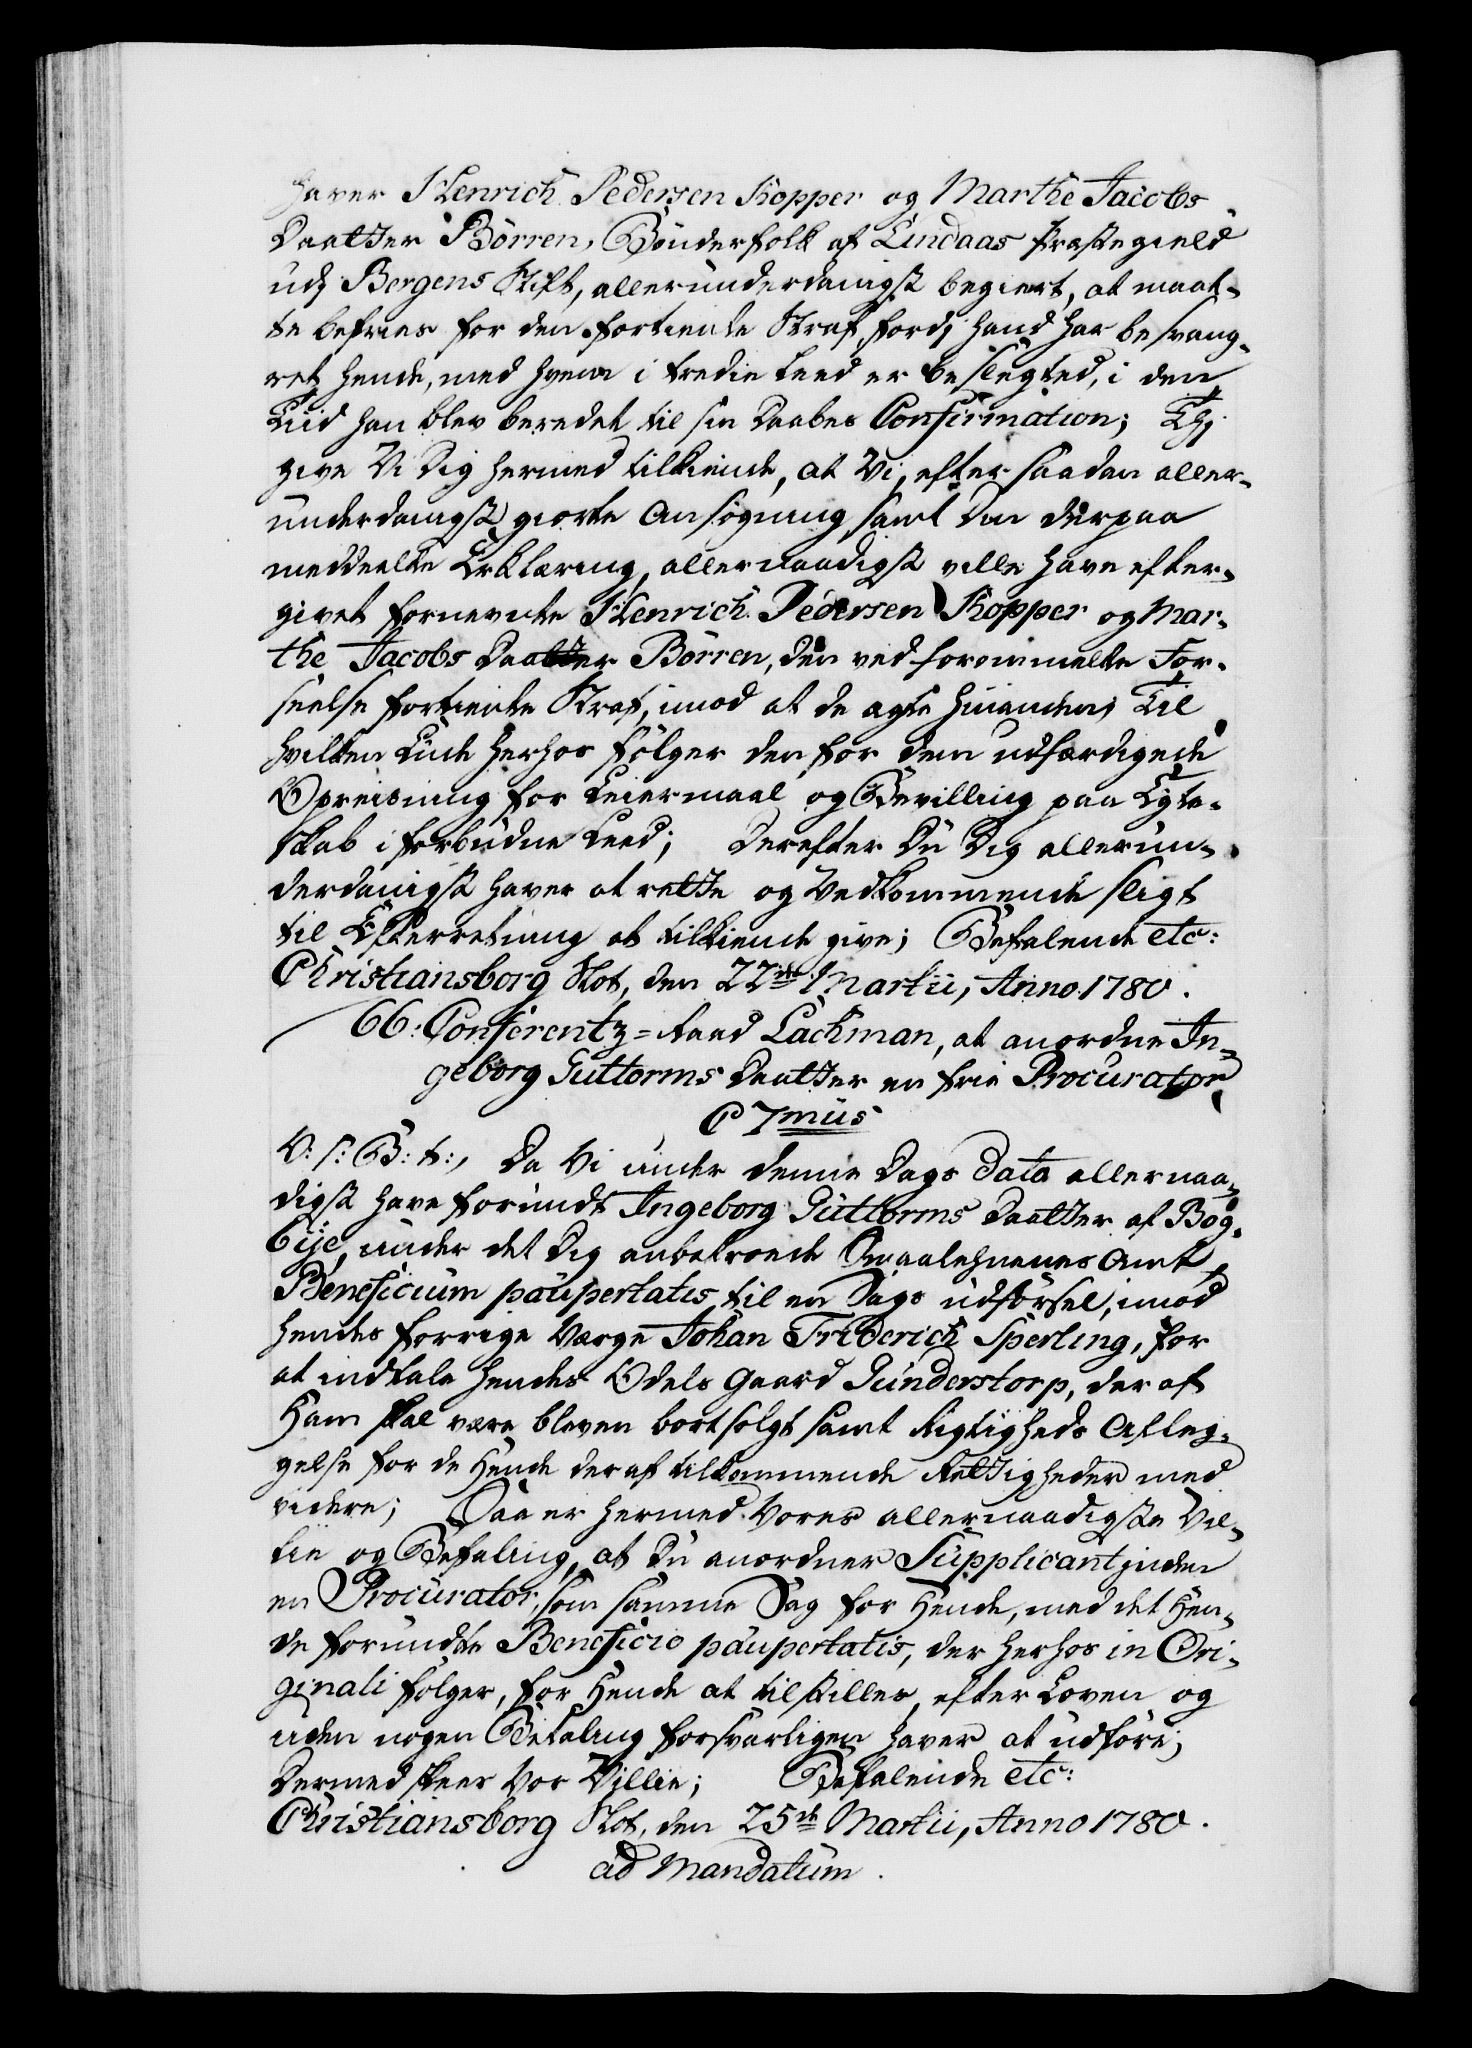 haver Henrich Pedersen Kopper og Marthe Jacobs
Daatter Börren, Bönderfolk af Lindaas Præstegield
udj Bergens Stift, allerunderdanigst begiert, at maat-
te befries for den fortiente Straf, fordj hand har besvang-
ret hende, med hvem i tredie Leed er beslegted, i den
Tiid han blev beredet til sin Daabes Confirmation; Thj
give Vi Dig hermed tilkiende, at Vi, efter saadan aller-
underdanigst giorte Ansögning samt Din derpaa
meddeelte Erklæring, allernaadigst ville have efter-
givet fornevnte Henrich Pedersen Kopper og Mar-
the Jacobs Daatter Börren, den ved forommelte For-
seelse fortiente Straf, imod at de ægte hinanden; Til
hvilken Ende herhos fölger den for dem udfærdigede
Opreisning for Leiermaal og Bevilling paa Ægte-
skab i forbudne Leed; Derefter Du Dig allerun-
derdanigst haver at rette og Vedkommende sligt
til Efterretning at tilkiende give; Befalende etc:
Christiansborg Slot, den 22de Martii, Anno 1780.
66: Conferentz=Raad Lachman, at anordne In-
geborg Guttorms Daatter en frie Procurator
C 7mus
V: s: G: t:, Da Vi under denne Dags Dato allernaa-
digst have forundt Ingeborg Guttorms Daatter af Bog-
bye, under det Dig anbetroede Smaalehnenes Amt,
Beneficium paupertatis, til en Sags udförsel, imod
hendes forrige Værge Johan Friderich Sperling, for
at indtale hendes Odels Gaard Gunderstorp, der af
Ham skal være bleven bortsolgt samt Rigtigheds Afleg-
gelse for de Hende deraf tilkommende Rettigheder med
videre; Saa er hermed Vores allernaadigste Vil-
lie og Befaling, at Du anordner Supplicantinden
en Procurator, som samme Sag for Hende, med det Hen-
de forundte Beneficio paupertatis, der herhos in Ori-
ginali fölger, for Hende at tilstilles, efter Loven og
uden nogen Betaling forsvarligen haver at udföre;
Dermed skeer Vor Villie; Befalende etc:
Christiansborg Slot, den 25de Martii, Anno 1780.
ad Mandatum.